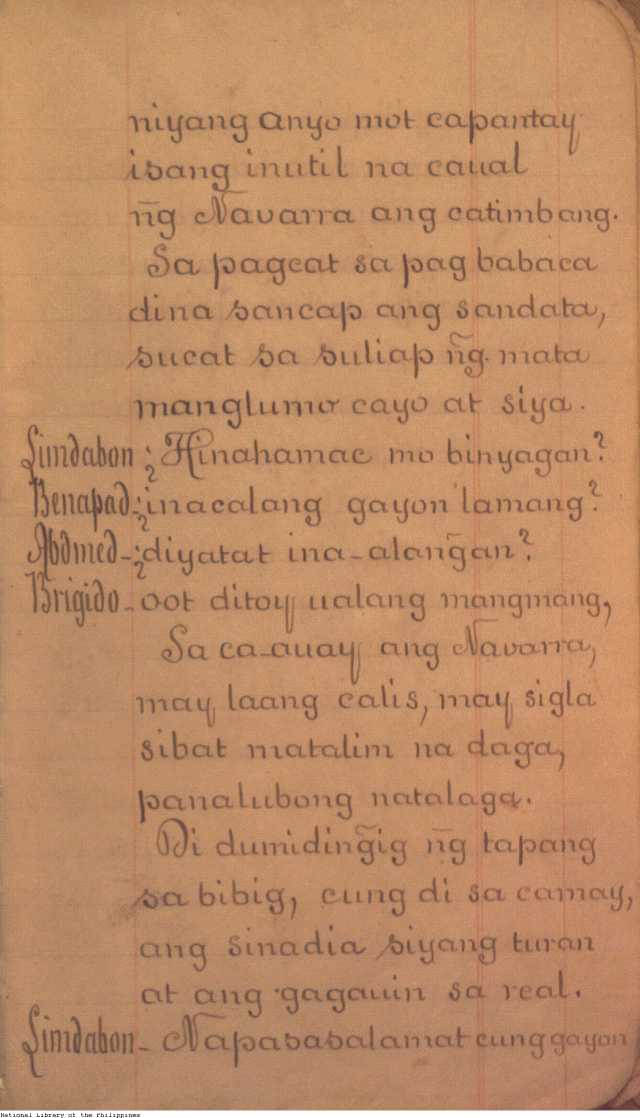 niyang anyo mot capantay
isang inutil na caual
n̄g Navarra ang catimbang.
Sa pagcat sa pag babaca
dina sancap ang sandata,
sucat sa suliap n̄g. mata
manglumo cayo at siya.
Limdabon ¿Hinahamac mo binyagan?
Benapad-¿inacalang gayon lamang?
Abdmed-¿diyatat ina-alan̄gan?
Brigido-oot ditoy ualang mangmang,
Sa ca-auay ang Navarra,
may laang calis, may sigla
sibat matalim na daga,
panalubong natalaga.
Di dumidin̄gig n̄g tapang
sa bibig, cung di sa camay,
ang sinadia siyang turan
at ang gagauin sa real.
Limdabon- Napasasalamat cung gayon
National Library of the Philippines